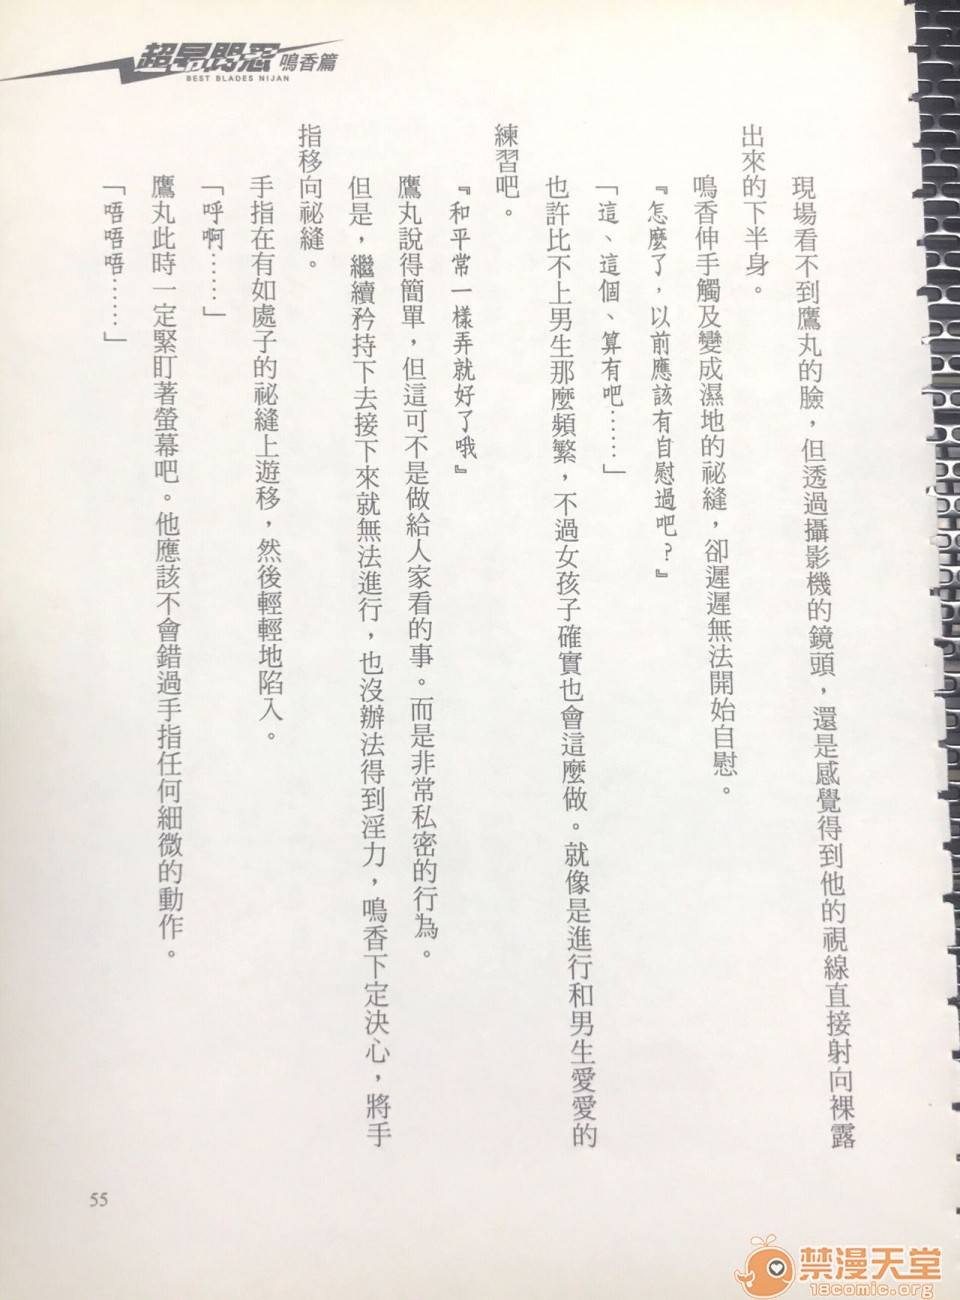 超昂閃忍 鳴香篇
BEST BLADES NIJAN
現場看不到鷹丸的臉，但透過攝影機的鏡頭，還是感覺得到他的視線直接射向裸露
出來的下半身。
鳴香伸手觸及變成濕地的祕縫，卻遲遲無法開始自慰。
『怎麼了，以前應該有自慰過吧？』
「這、這個、算有吧……」
也許比不上男生那麼頻繁，不過女孩子確實也會這麼做。就像是進行和男生愛愛的
練習吧。
『和平常一樣弄就好了哦』
鷹丸說得簡單，但這可不是做給人家看的事。而是非常私密的行為。
但是，繼續矜持下去接下來就無法進行，也沒辦法得到淫力，鳴香下定決心，將手
指移向祕縫。
手指在有如處子的祕縫上遊移，然後輕輕地陷入。
「呼啊……」
鷹丸此時一定緊盯著螢幕吧。他應該不會錯過手指任何細微的動作。
「唔唔唔……」
55
禁漫天堂
18comic.org